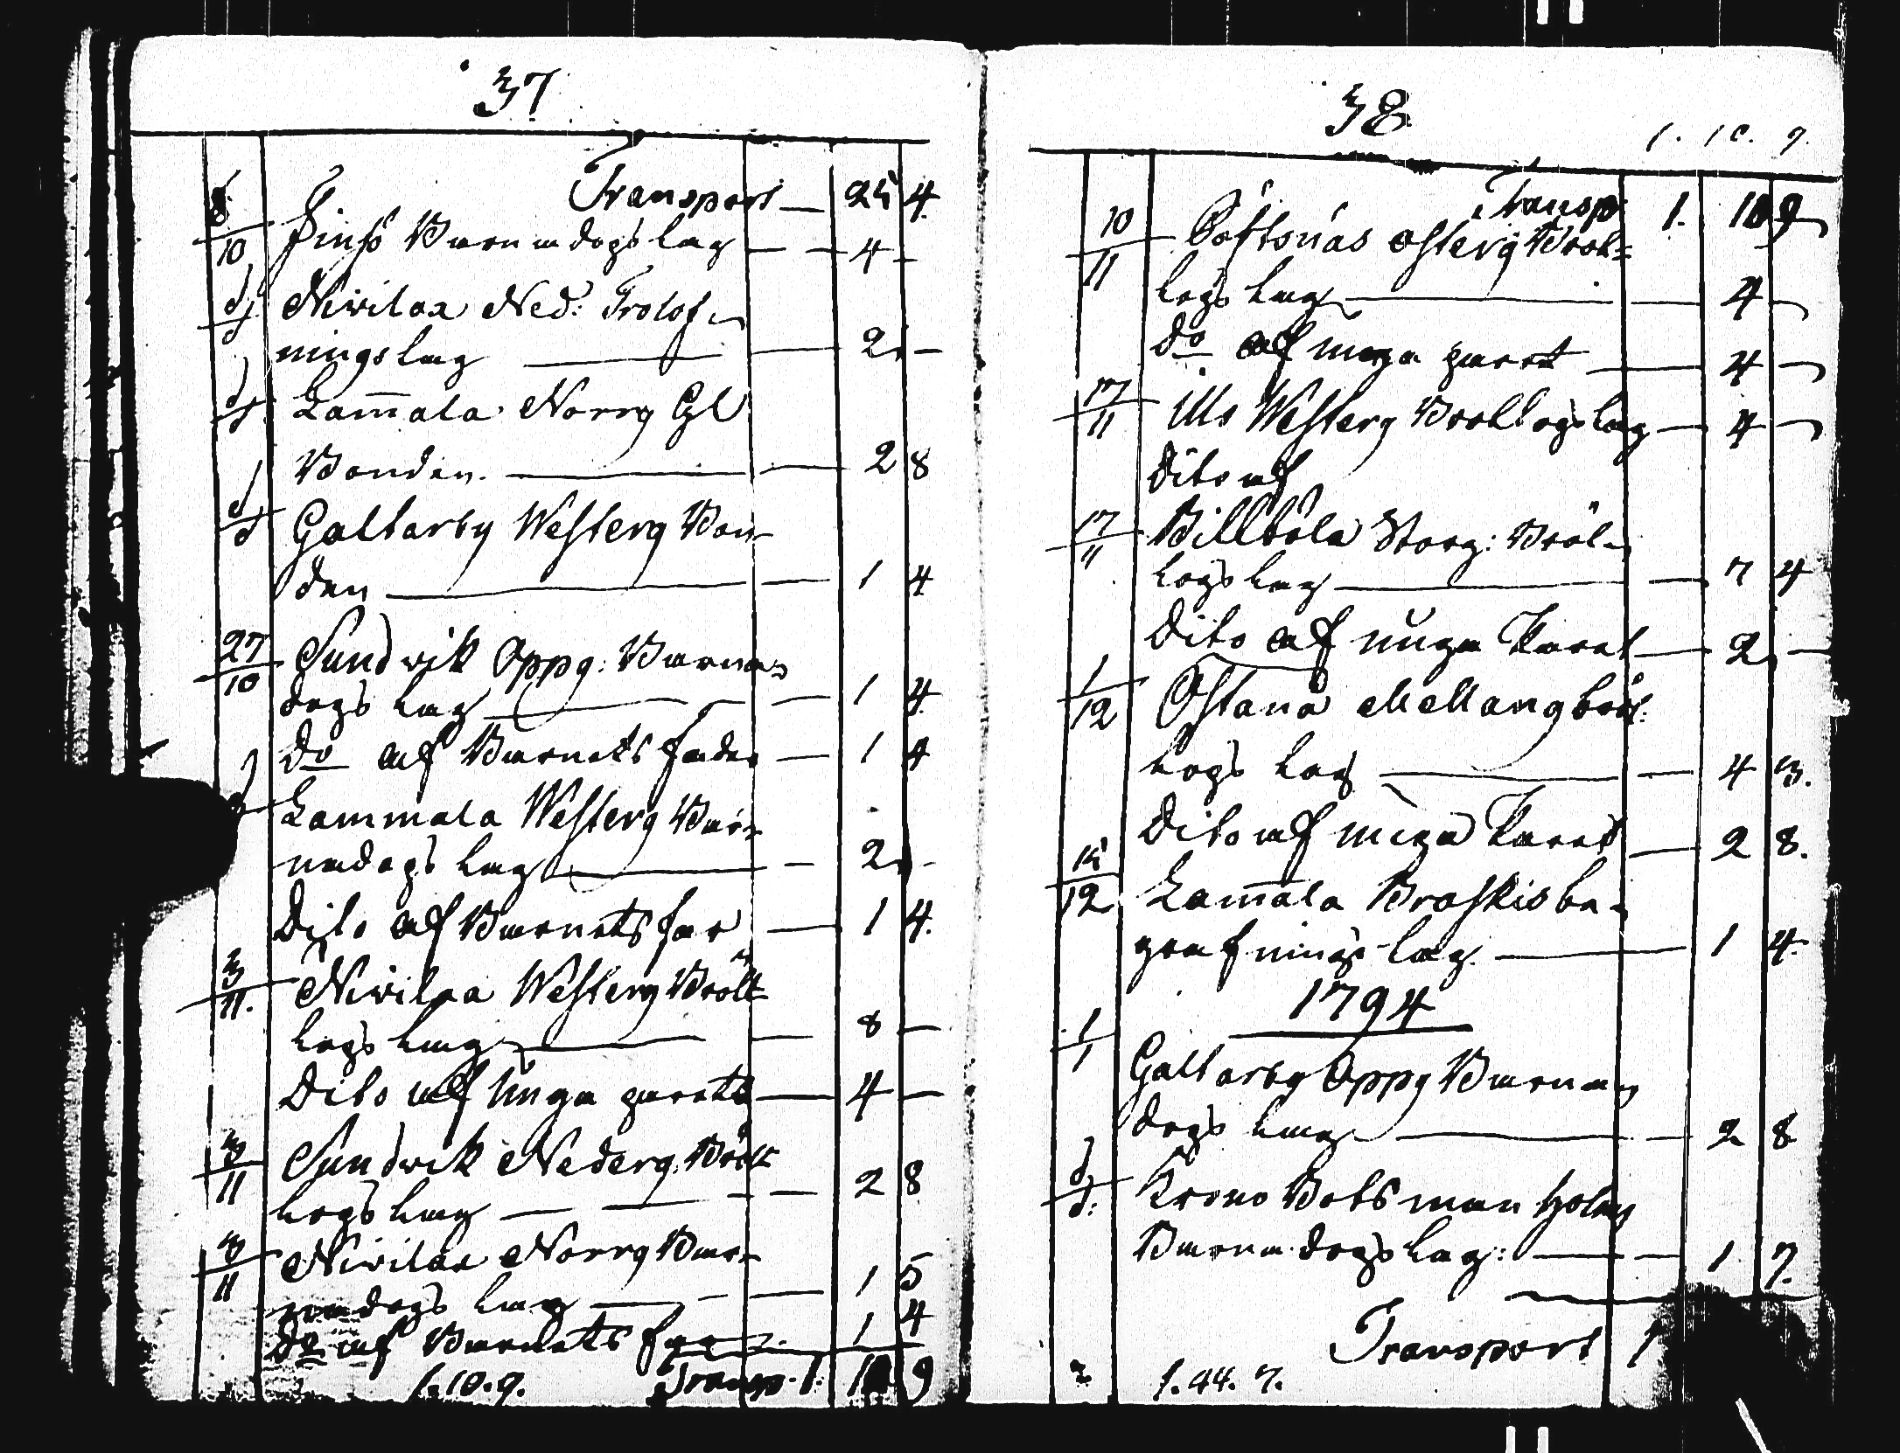 37
Transport — 25 4
8/10 Finsö Barnadopslag — 4 —
d/d Nivilax Ned: Trolof-
ningslag — 2 —
d/d Lam̄ala Norrg Gl
Bonden — 2 8
d/d Galtarby Westerg Bon-
den — 1 4
27/10 Sundvik Oppg: Barna-
dops lag — 1 4
Do af Barnets fader — 1 4
d/d Lammala Westerg Bar-
nadops lag — 2 —
Dito af Barnets far — 1 4.
3/11. Nivilax Westerg Bröll-
lops lag — 8 —
Dito af Unga parets — 4 —
3/11 Sundvik Nederg. Bröl-
lops lag — 2 8
3/11 Nivilax Norrg Bar-
nadops lag — 1 5
Do af Barnets far — 1 4
1.10.9. Transp. 1. 10 9
38
1. 10. 9.
Transp 1. 10 9
10/11 Böstsnäs Osterg Bröl-
lops lag — 4 —
Do af unga paret — 4 —
17/11 Ills Westerg Bröllopslag — 4 —
Dito af
17/11 Billböla Storg: Bröl-
lops lag — 7 4
Dito af unga Paret — 2 —
1/12 Östanå Mellangbröl:
lops lag — 4 3.
Dito af unga Paret — 2 8.
15/12 Lam̄ala Broskis be-
grafnings lag. — 1 4
1794
1/1 Galtarby Oppg Barna-
dops lag — 2 8
d/d: Krono Botsman Holm
Barnadops lag: — 1 7.
Transport 1
1.44.7.